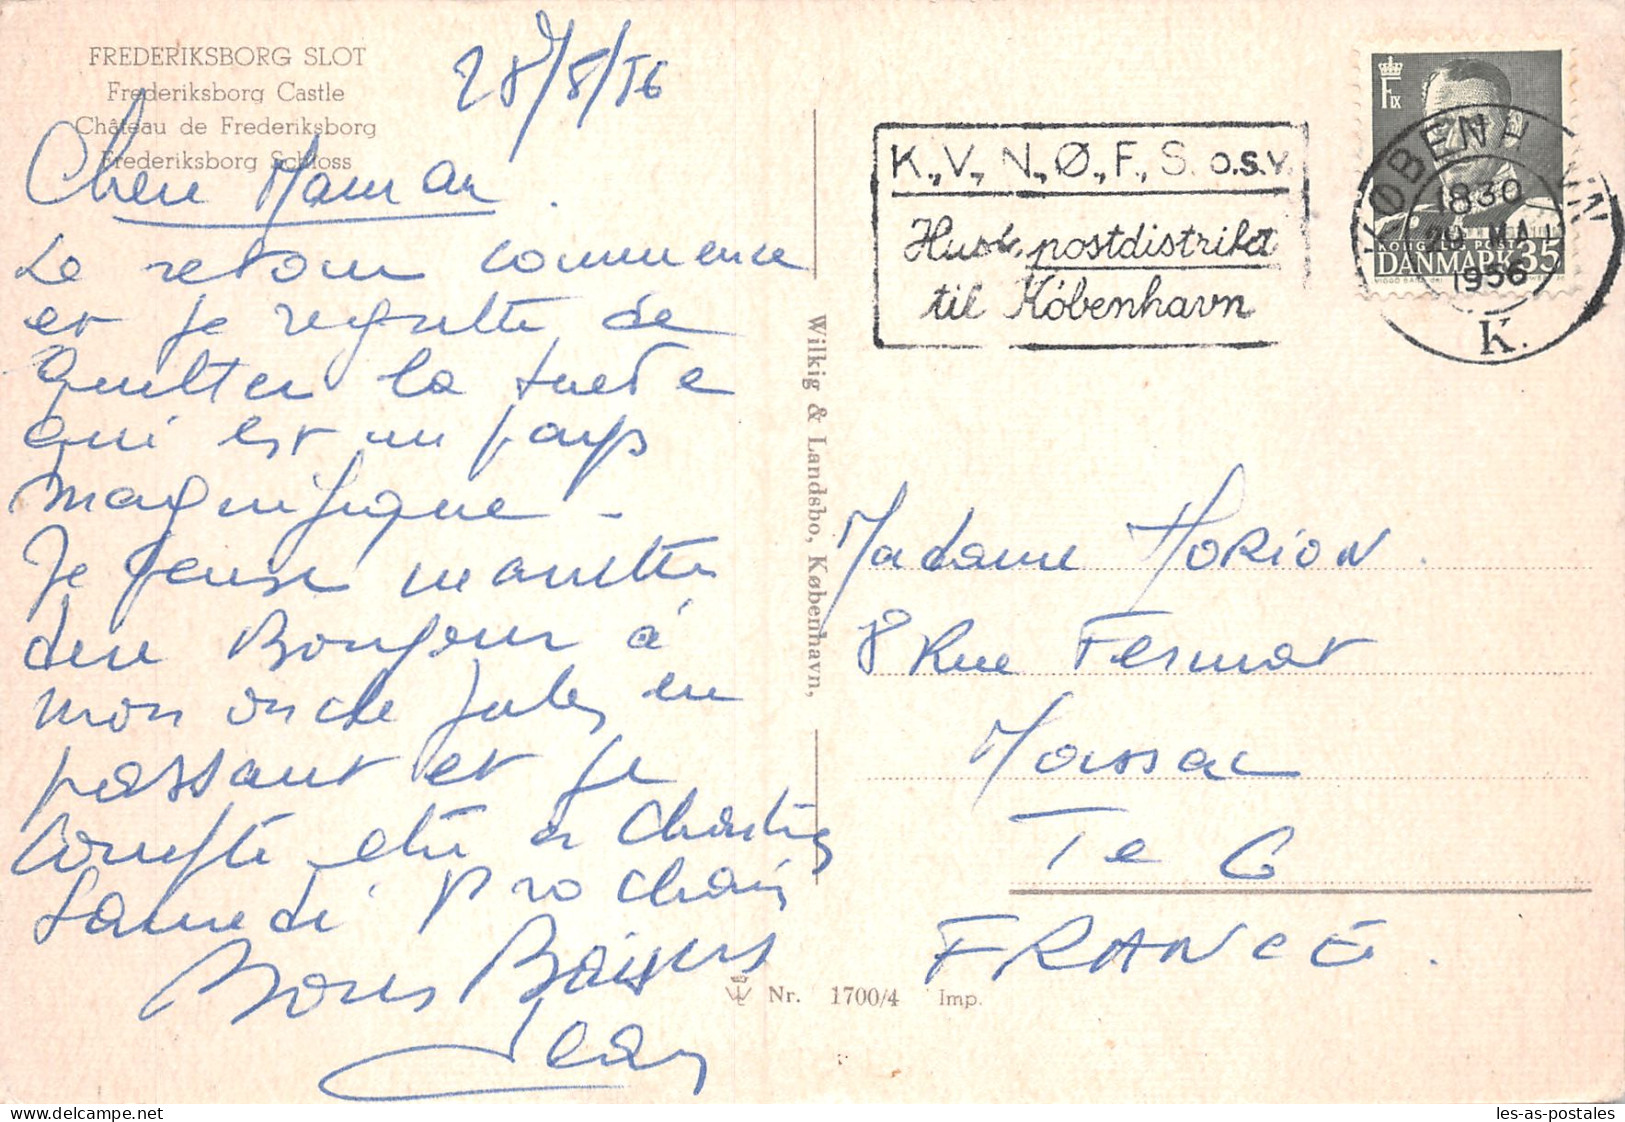 FREDERIKSBORG SLOT
Frederiksborg Castle
Château de Frederiksborg
Frederiksborg Schloss
28/5/56
Chere Maman.
Le retour commence
et je regrette de
quitter la suede
qui est un pays
magnifique -
Je pense
dire Bonjour à
mon oncle Jules en
passant et je
compte etre a
Samedi prochain
Bons Baisers
Jean
Wilkig & Landsbo, København,
Nr. 1700/4 Imp.
K., V., N., Ø., F., S. O.S.V.
Husk postdistrikt
til København
KØBENHAVN
1830
MAJ
1956
K.
F IX
KONGELIG POST
DANMARK 35
Madame MORION.
8 Rue Fermat
Moissac
T e G
FRANCE.
les-as-postales